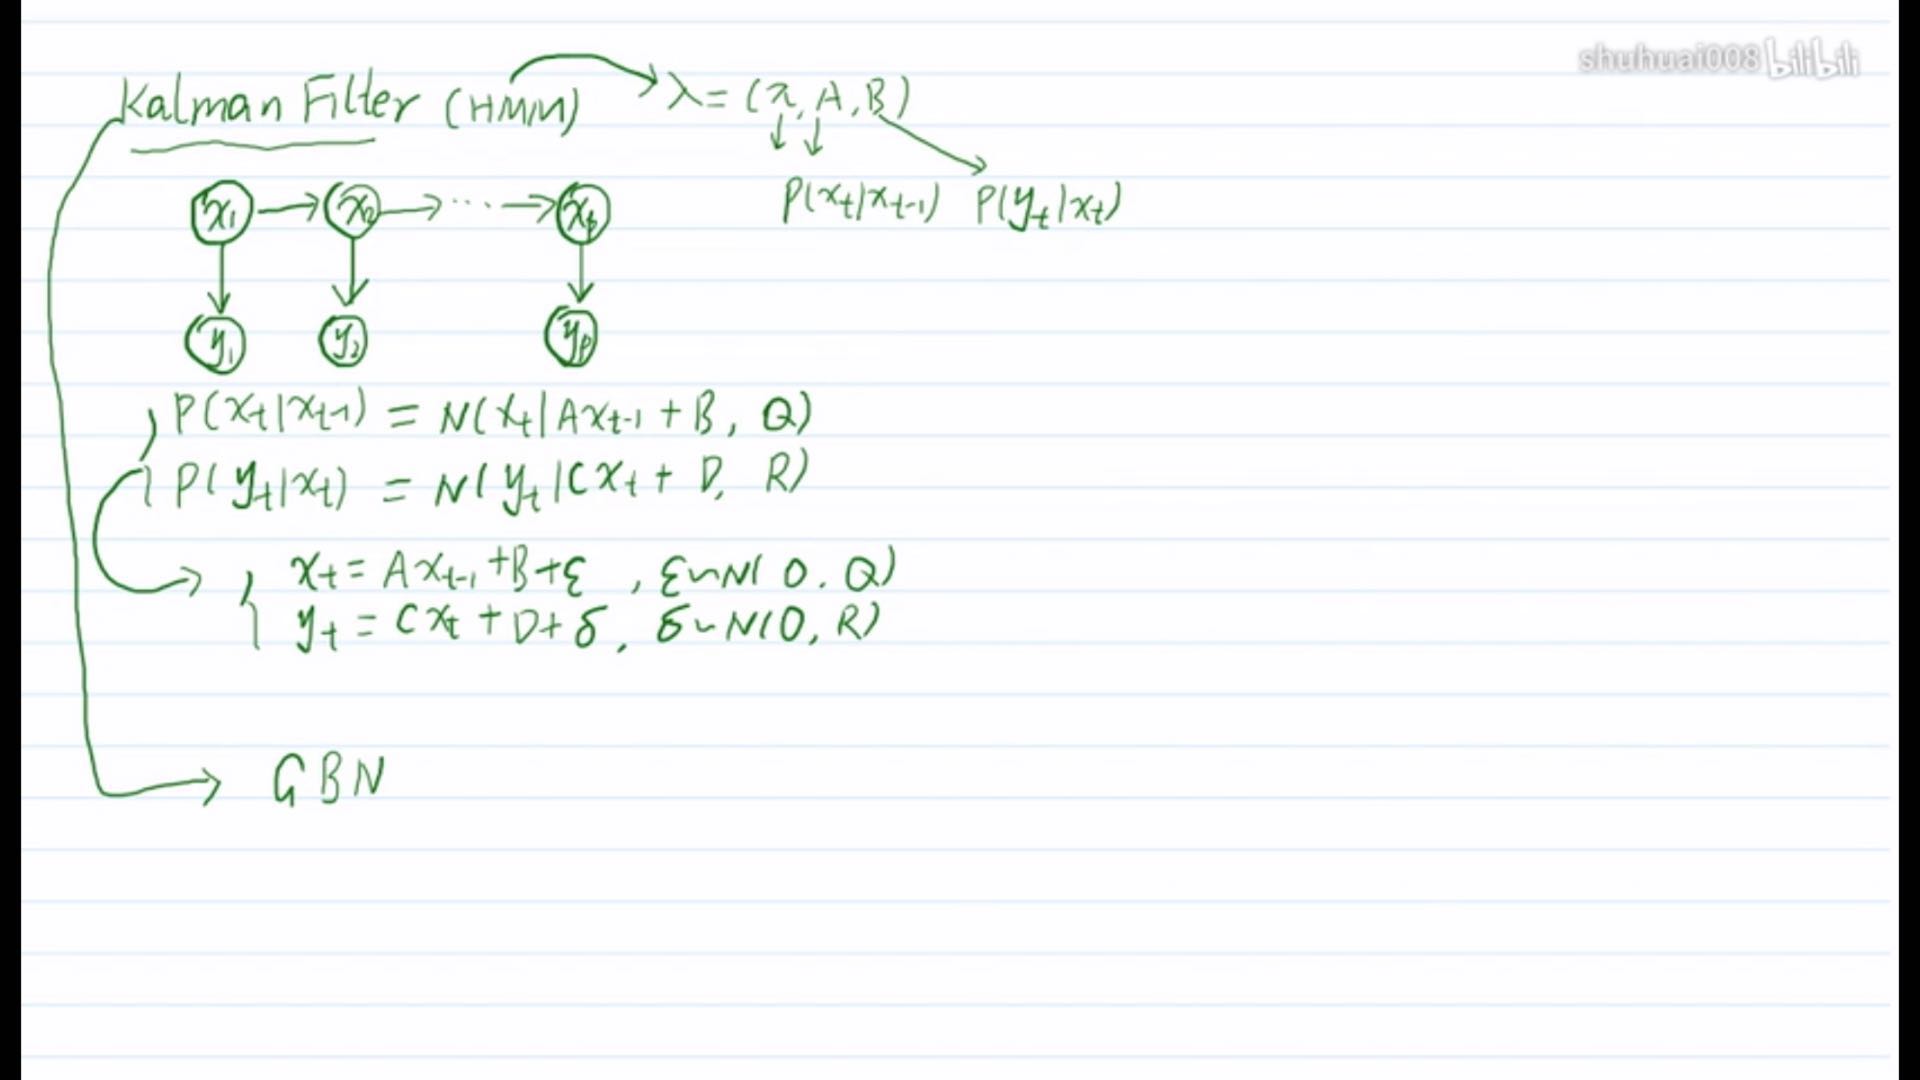 shuhuai008 bilibili
Kalman Filter (HMM) → λ = (π, A, B)
P(xt|xt-1) P(yt|xt)
x1 → x2 → ··· → xp
y1 y2 yp
P(xt|xt-1) = N(xt|Axt-1 + B, Q)
P(yt|xt) = N(yt|Cxt + D, R)
xt = Axt-1 + B + ε , ε ~ N(0, Q)
yt = Cxt + D + δ , δ ~ N(0, R)
GBN